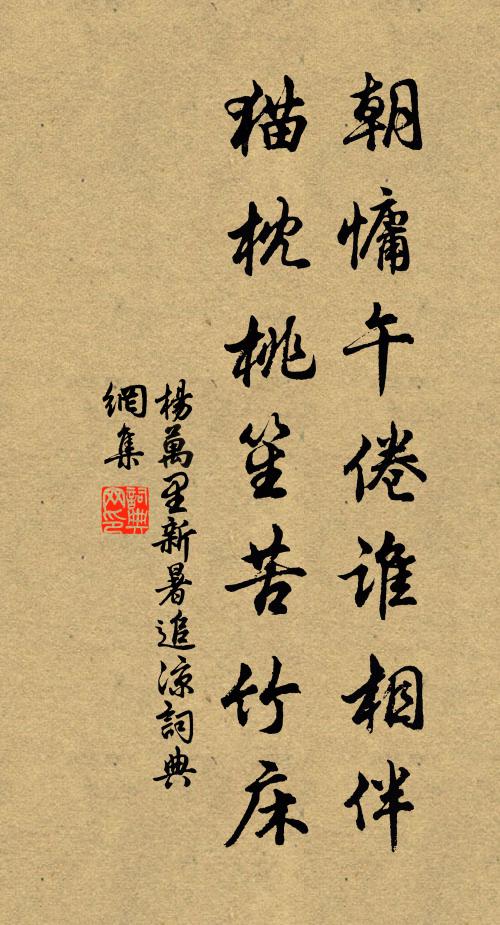 朝慵午倦谁相伴
猫枕桃笙苦竹床
楊萬里新暑追涼詞典
網集
詞典
网印